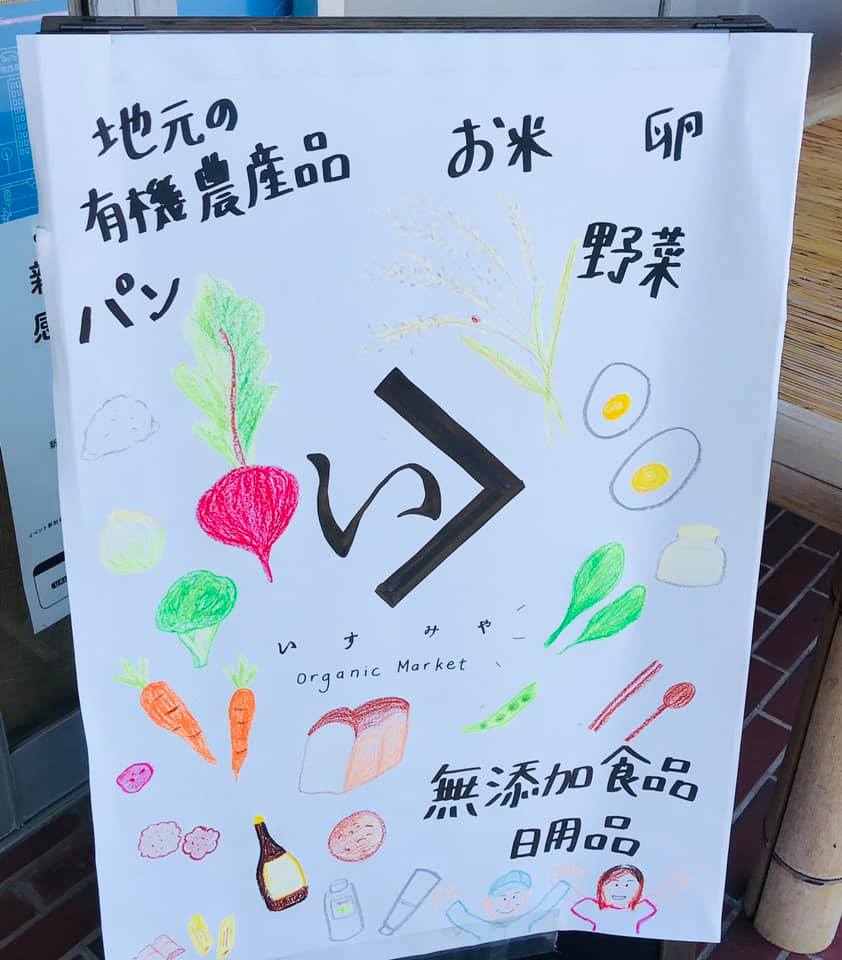 地元の
有機農産品
お米
卵
野菜
パン
い
いすみや
Organic Market
無添加食品
日用品